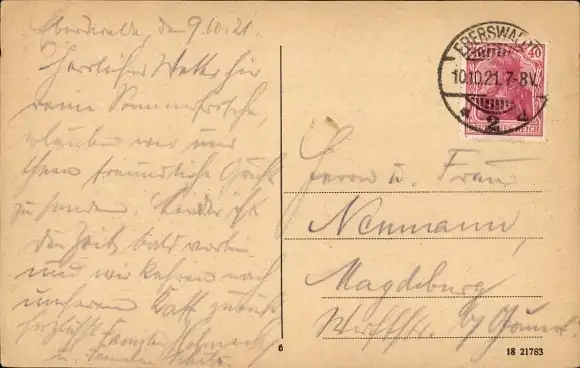 Eberswalde, den 9.10.21.
Herrliches Wetter hier
Sommerfrische,
erlauben wir uns
Ihnen freundliche Grüße
zu senden. Leider ist
die Zeit bald vorbei
und wir kehren nach
unserem zurück
herzlichst Familie
u.
EBERSWALDE
10.10.21.7-8V.
* 2 d
40
Herrn u. Frau
Neumann,
Magdeburg
6
18 21783